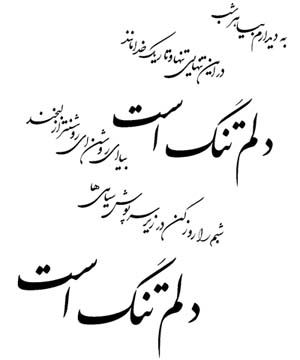 به دیدارم بیا هر شب
در این تنهایی تنها و تاریک خدا مانند
دلم تنگ است
بیا ای روشن ای روشنتر از لبخند
شبم را روز کن در زیر سرپوش سیاهی ها
دلم تنگ است